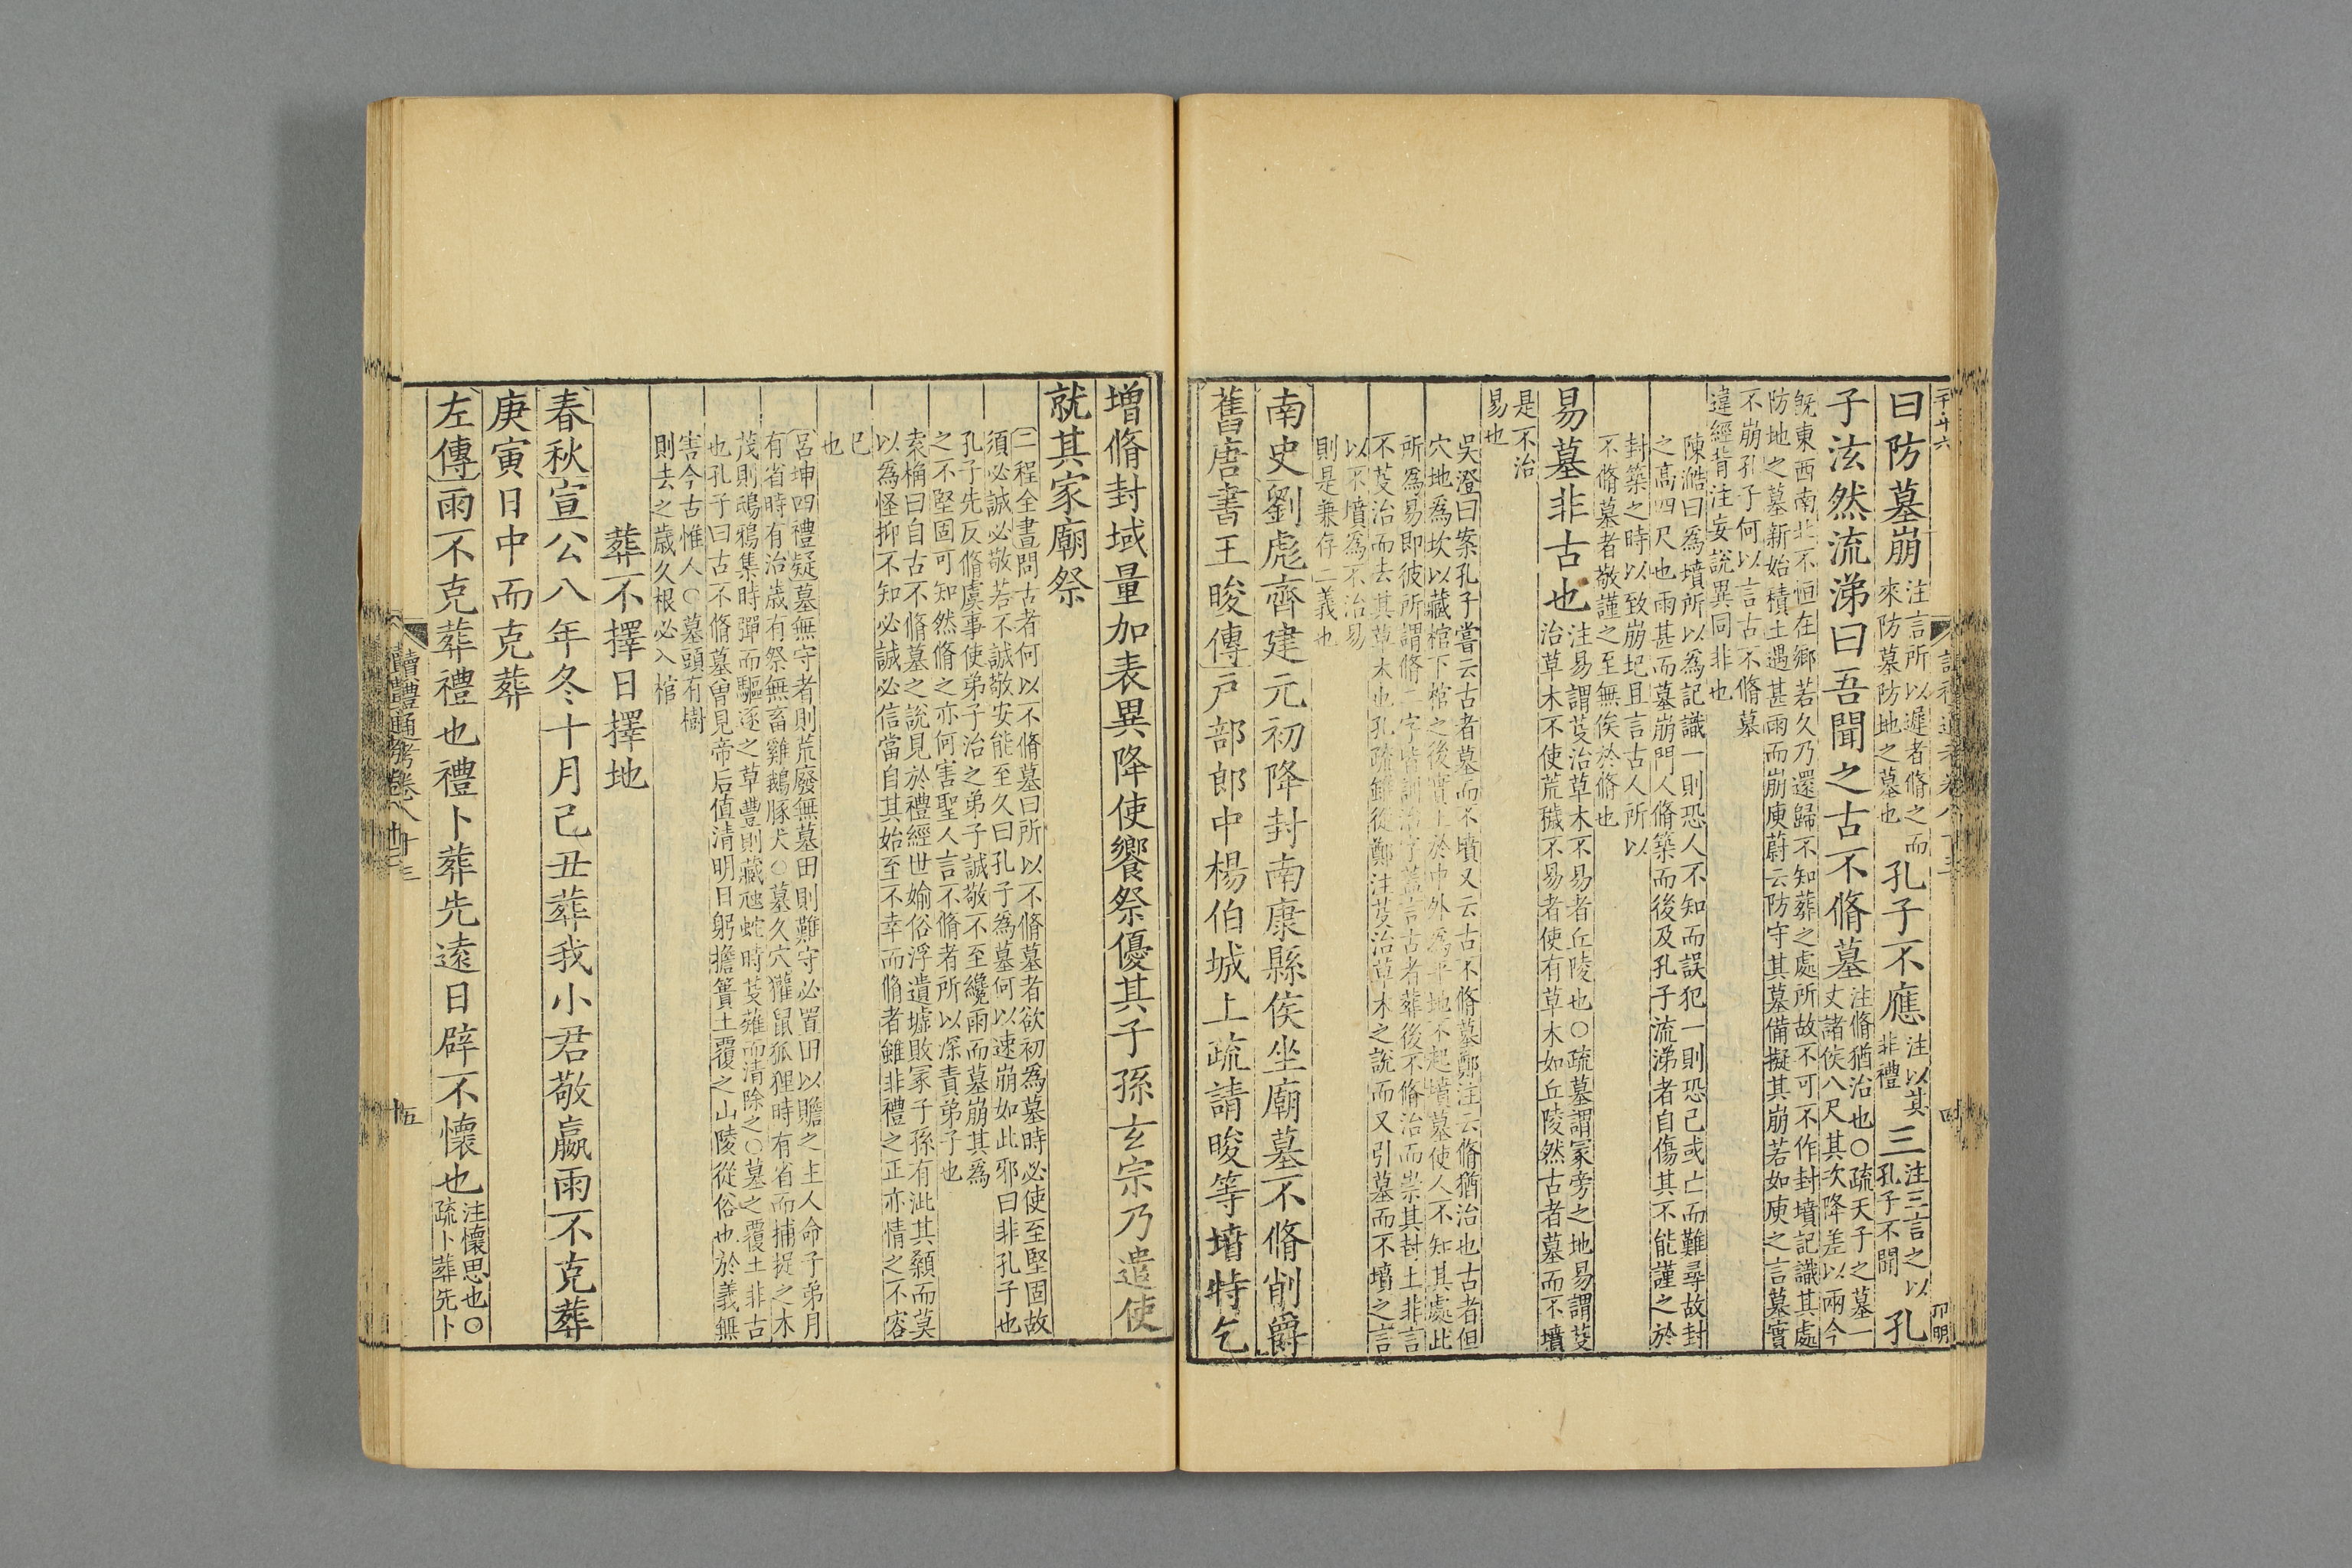 曰防墓崩注言所以遲者脩之而來防墓防地之墓也孔子不應注以其非禮三注三言之以孔子不聞孔
子泫然流涕曰吾聞之古不脩墓注脩猶治也〇疏天子之墓一丈諸侯八尺其次降差以兩今
既東西南北不恒在鄉若久乃還歸不知葬之處所故不可不作封墳記識其處
防地之墓新始積土遇甚雨而崩庾蔚云防守其墓備擬其崩若如庾之言墓實
不崩孔子何以言古不脩墓
違經背注妄說異同非也
陳澔曰為墳所以為記識一則恐人不知而誤犯一則恐己或亡而難尋故封
之高四尺也雨甚而墓崩門人脩築而後及孔子流涕者自傷其不能謹之於
封築之時以致崩圮且言古人所以
不脩墓者敬謹之至無俟於脩也
易墓非古也注易謂芟治草木不易者丘陵也〇疏墓謂冢旁之地易謂芟治草木不使荒穢不易者使有草木如丘陵然古者墓而不墳
是不治
易也
吳澄曰案孔子嘗云古者墓而不墳又云古不脩墓鄭注云脩猶治也古者但
穴地為坎以藏棺下棺之後實土於中外為平地不起墳墓使人不知其處此
所為易即彼所謂脩二字皆訓治字蓋言古者葬後不脩治而崇其封土非言
不芟治而去其草木也孔疏雖從鄭注芟治草木之說而又引墓而不墳之言
以不墳為不治易
則是兼存二義也
南史劉彪齊建元初降封南康縣侯坐廟墓不脩削爵
舊唐書王晙傳戶部郎中楊伯城上疏請晙等墳特乞
增脩封域量加表異降使饗祭優其子孫玄宗乃遣使
就其家廟祭
二程全書問古者何以不脩墓曰所以不脩墓者欲初為墓時必使至堅固故
須必誠必敬若不誠敬安能至久曰孔子為墓何以速崩如此邪曰非孔子也
孔子先反脩虞事使弟子治之弟子誠敬不至纔雨而墓崩其為
之不堅固可知然脩之亦何害聖人言不脩者所以深責弟子也
柰桷曰自古不脩墓之說見於禮經世媮俗浮遺墟敗冢子孫有泚其顙而莫
以為怪抑不知必誠必信當自其始至不幸而脩者雖非禮之正亦情之不容
已
也
呂坤四禮疑墓無守者則荒廢無墓田則難守必置田以贍之主人命子弟月
有省時有治歲有祭無畜雞鵝豚犬〇墓久穴獾鼠狐狸時有省而捕捉之木
茂則鴟鴉集時彈而驅逐之草豐則藏虺蛇時芟薙而清除之〇墓之覆土非古
也孔子曰古不脩墓曾見帝后值清明日躬擔簣土覆之山陵從俗也於義無
害今古惟人〇墓頭有樹
則去之歲久根必入棺
葬不擇日擇地
春秋宣公八年冬十月己丑葬我小君敬嬴雨不克葬
庚寅日中而克葬
左傳雨不克葬禮也禮卜葬先遠日辟不懷也注懷思也〇疏卜葬先卜
讀禮通考卷八十三
十五